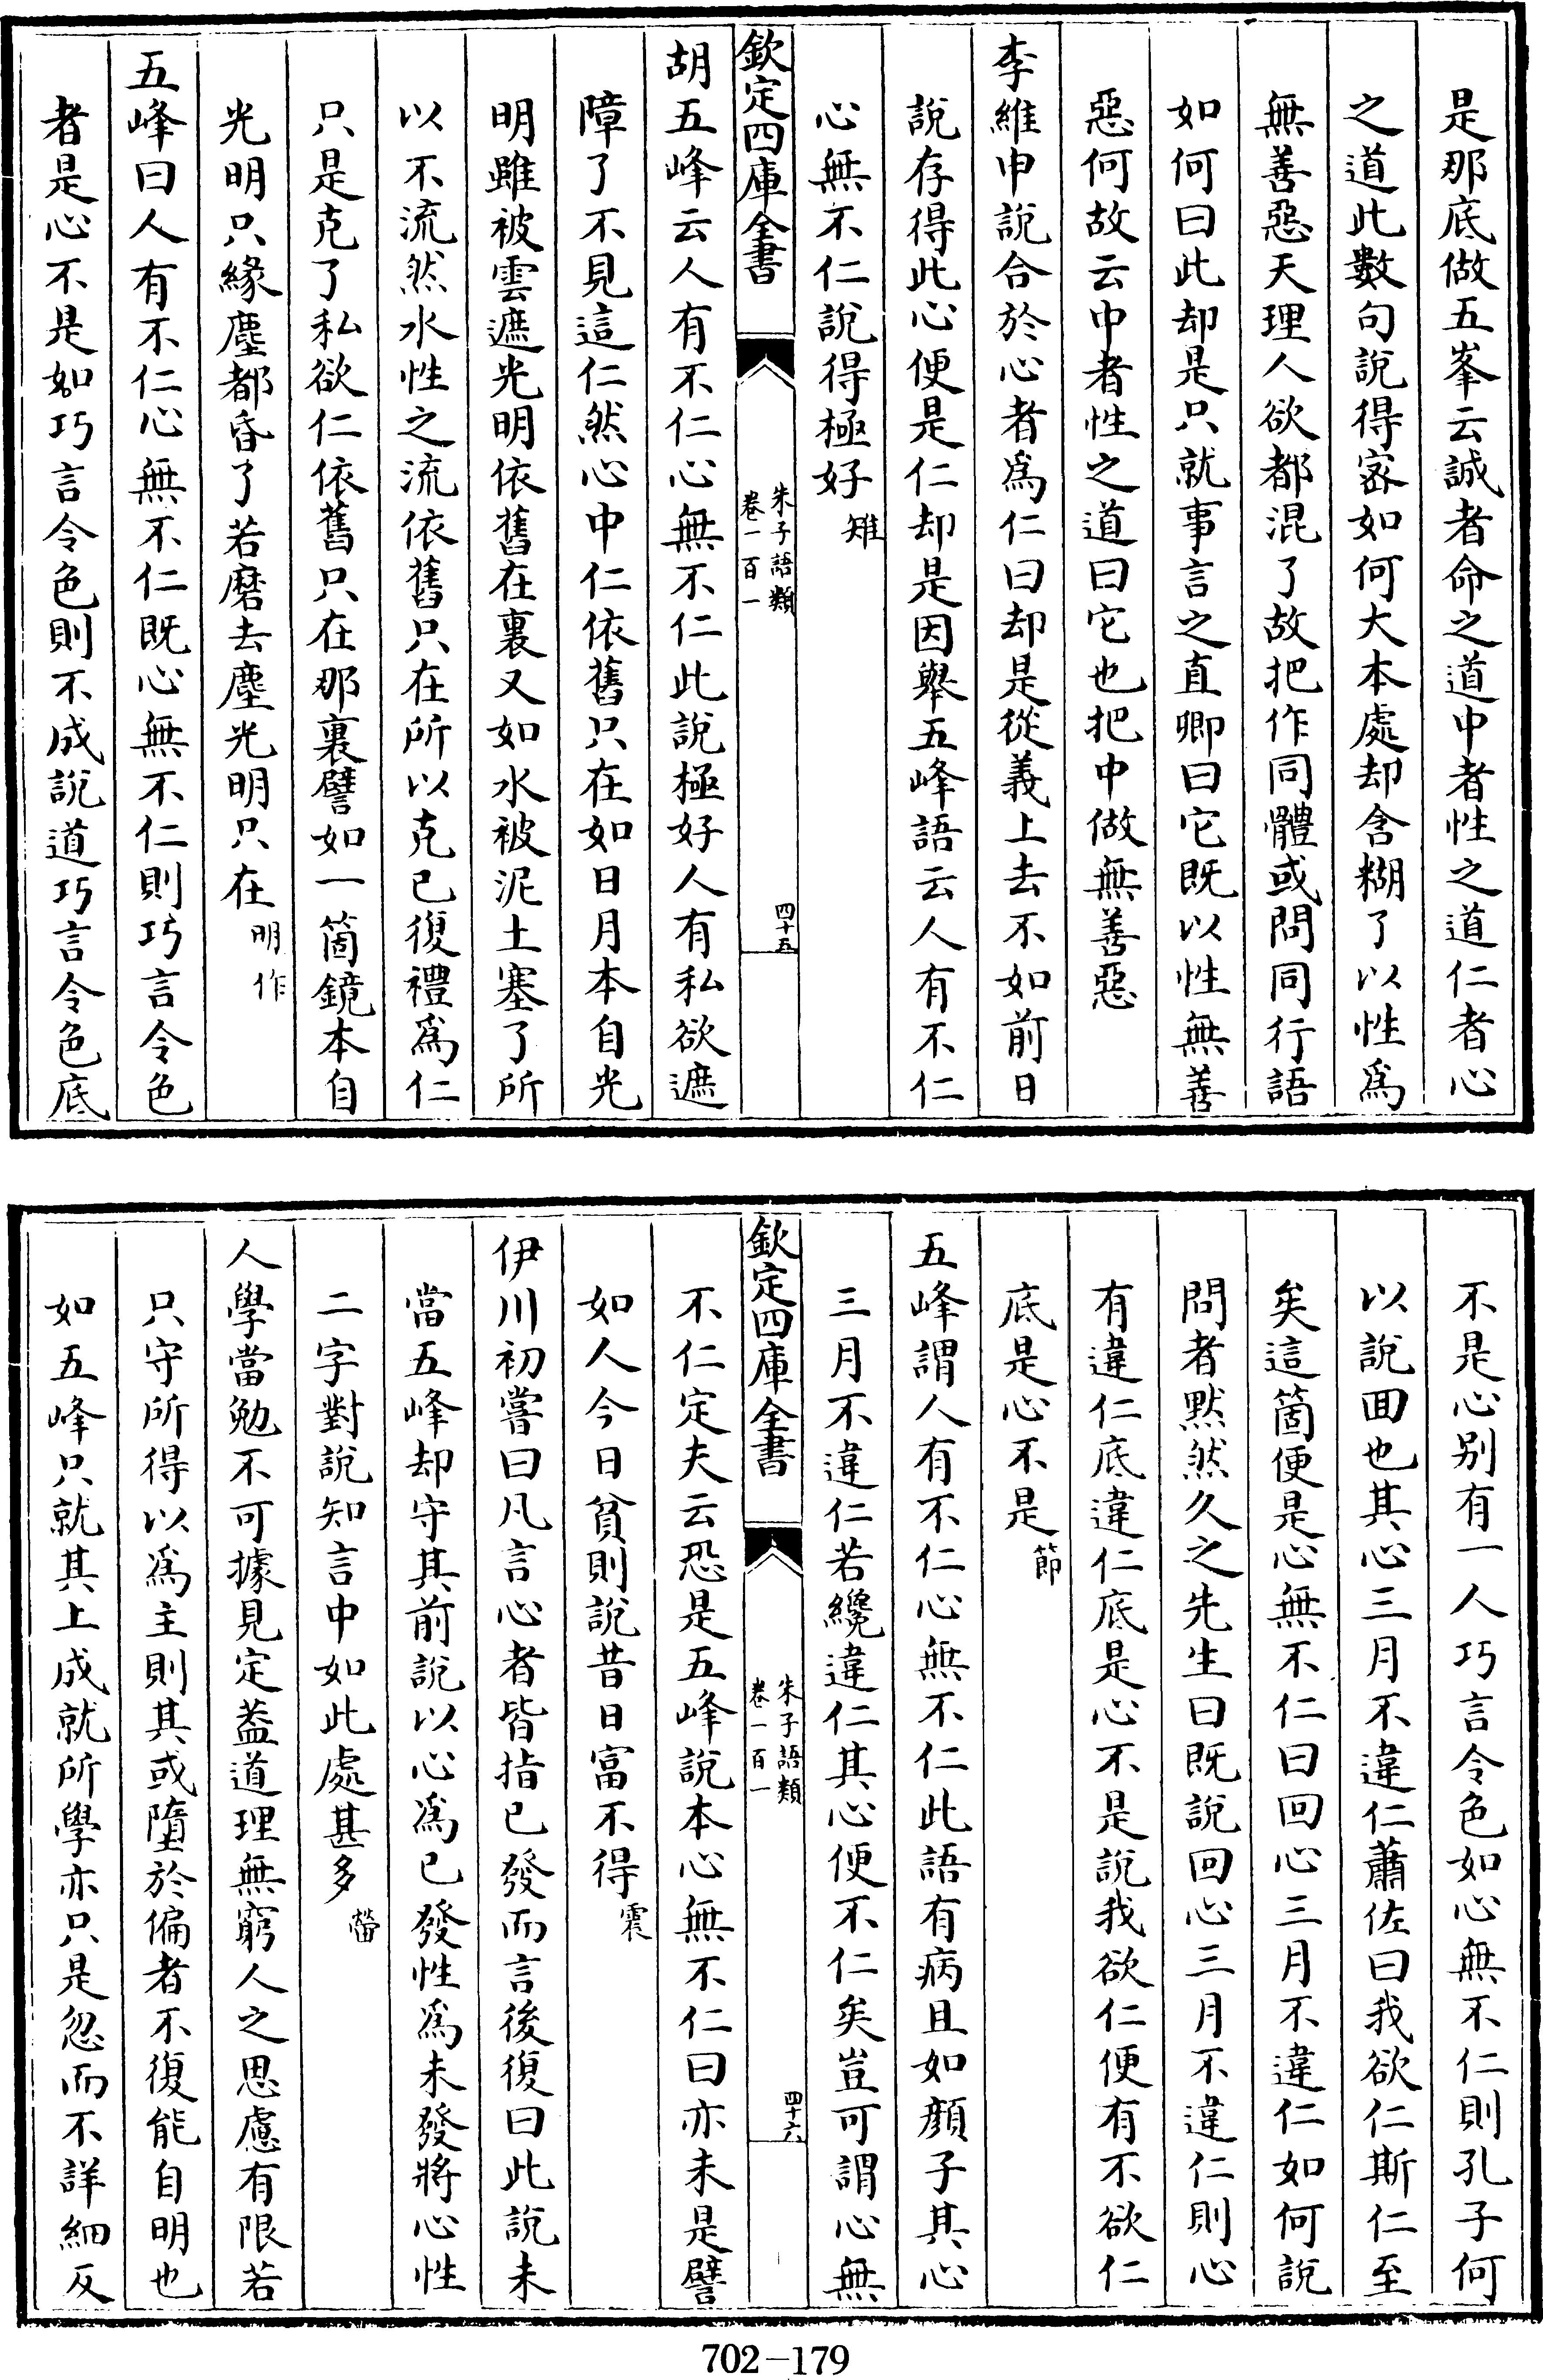 是那底做五峯云誠者命之道中者性之道仁者心
之道此數句說得宻如何大本處却含糊了以性爲
無善惡天理人欲都混了故把作同體或問同行語
如何曰此却是只就事言之直卿曰它既以性無善
惡何故云中者性之道曰它也把中做無善惡
李維申說合於心者爲仁曰却是從義上去不如前日
說存得此心便是仁却是因舉五峰語云人有不仁
心無不仁說得極好雉
欽定四庫全書
朱子語類
卷一百一
四十五
胡五峰云人有不仁心無不仁此說極好人有私欲遮
障了不見這仁然心中仁依舊只在如日月本自光
明雖被雲遮光明依舊在裏又如水被泥土塞了所
以不流然水性之流依舊只在所以克已復禮爲仁
只是克了私欲仁依舊只在那裏譬如一箇鏡本自
光明只緣塵都昏了若磨去塵光明只在明作
五峰曰人有不仁心無不仁既心無不仁則巧言令色
者是心不是如巧言令色則不成說道巧言令色底
不是心别有一人巧言令色如心無不仁則孔子何
以說囬也其心三月不違仁蕭佐曰我欲仁斯仁至
矣這箇便是心無不仁曰回心三月不違仁如何說
問者黙然久之先生曰既說回心三月不違仁則心
有違仁底違仁底是心不是說我欲仁便有不欲仁
底是心不是節
五峰謂人有不仁心無不仁此語有病且如顔子其心
三月不違仁若纔違仁其心便不仁矣豈可謂心無
欽定四庫全書
朱子語類
卷一百一
四十六
不仁定夫云恐是五峰說本心無不仁曰亦未是譬
如人今日貧則說昔日富不得震
伊川初嘗曰凡言心者皆指已發而言後復曰此說未
當五峰却守其前說以心爲已發性爲未發將心性
二字對說知言中如此處甚多㽦
人學當勉不可據見定葢道理無窮人之思慮有限若
只守所得以爲主則其或墮於偏者不復能自明也
如五峰只就其上成就所學亦只是忽而不詳細反
702-179